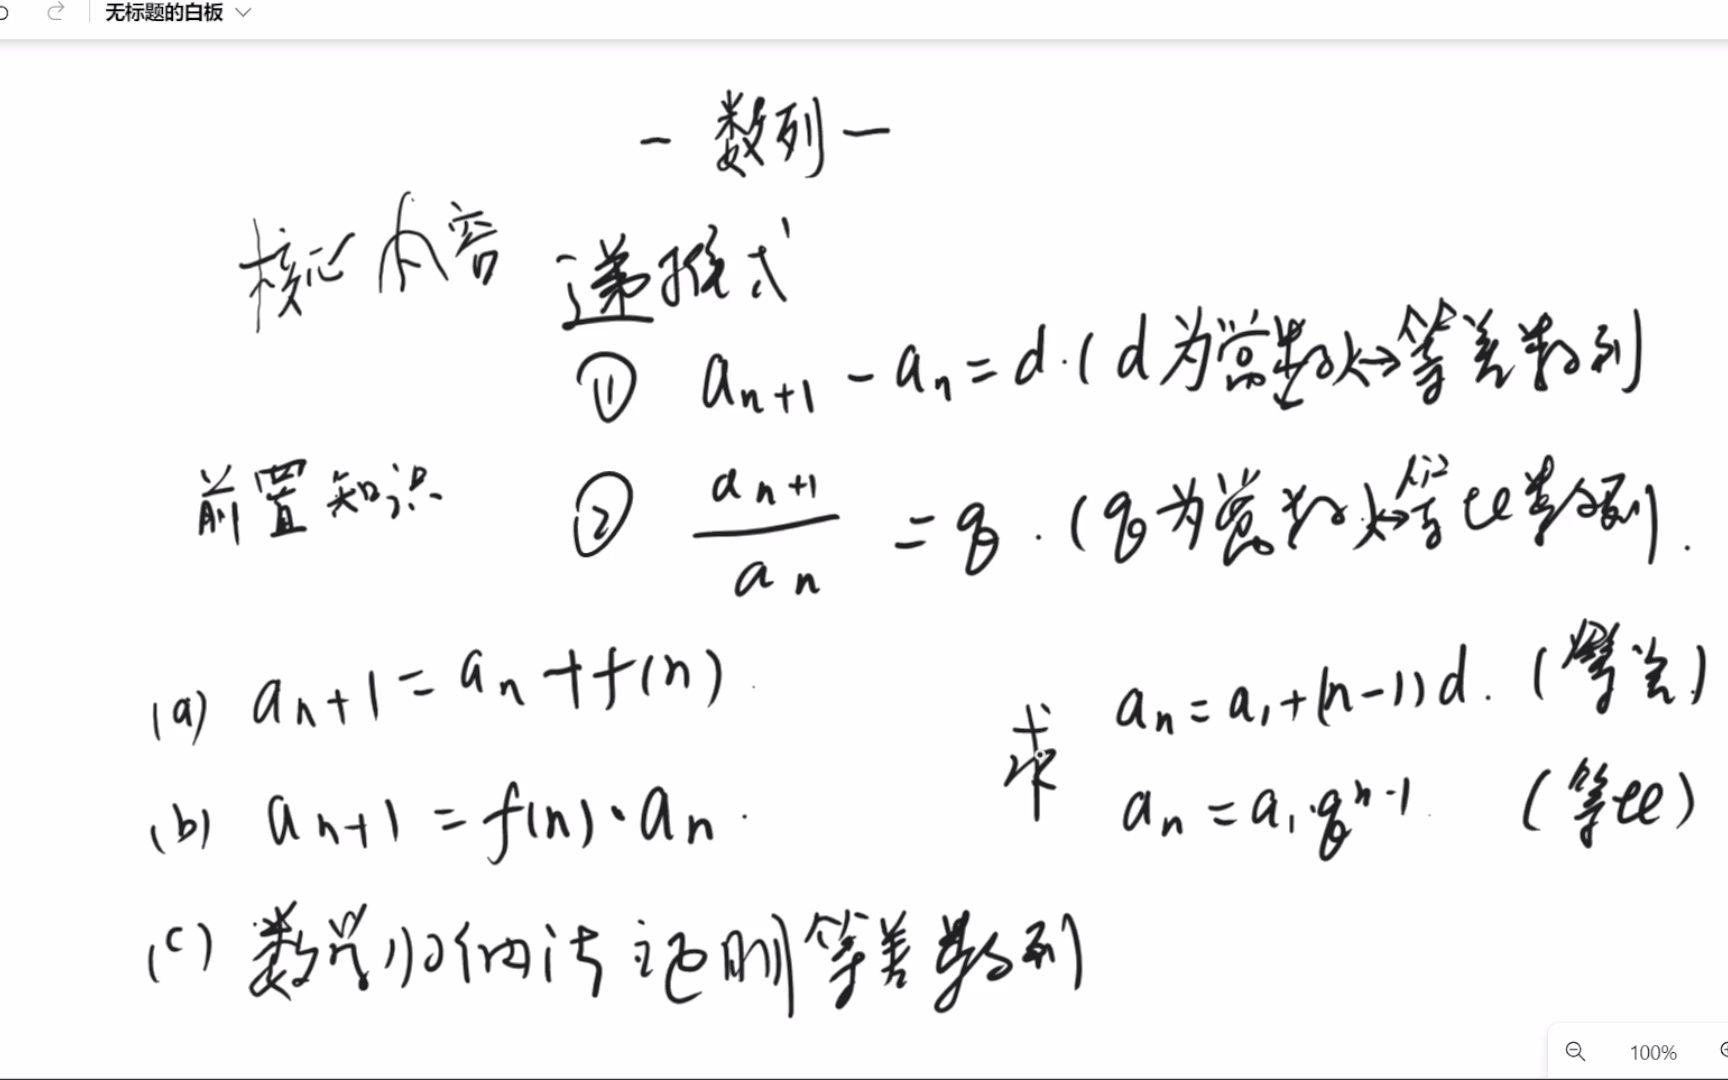 无标题的白板
- 数列 -
核心内容 递推式
① aₙ₊₁ - aₙ = d. (d为常数) ↔ 等差数列
前置知识 ② aₙ₊₁ / aₙ = q. (q为常数) ↔ 等比数列.
(a) aₙ₊₁ = aₙ + f(n).
(b) aₙ₊₁ = f(n)·aₙ.
(c) 数学归纳法证明等差数列
求 aₙ = a₁ + (n-1)d. (等差)
aₙ = a₁·qⁿ⁻¹. (等比)
100%